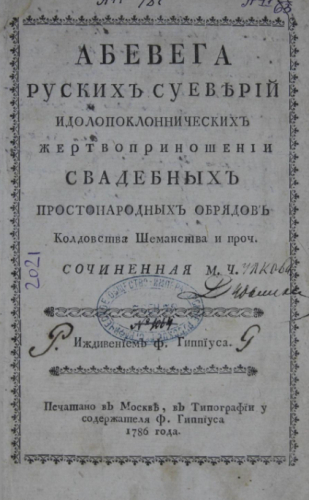 АБЕВЕГА
РУСКИХЪ СУЕВѢРІЙ
ИДОЛОПОКЛОННИЧЕСКИХЪ
ЖЕРТВОПРИНОШЕНІИ
СВАДЕБНЫХЪ
ПРОСТОНАРОДНЫХЪ ОБРЯДОВЪ
Колдовства Шеманства и проч.
СОЧИНЕННАЯ М. Ч.улкова
2021
Р. Иждивеніемъ Ф. Гиппіуса. G
Печатано въ Москвѣ, въ Типографіи у
содержателя Ф. Гиппіуса
1786 года.